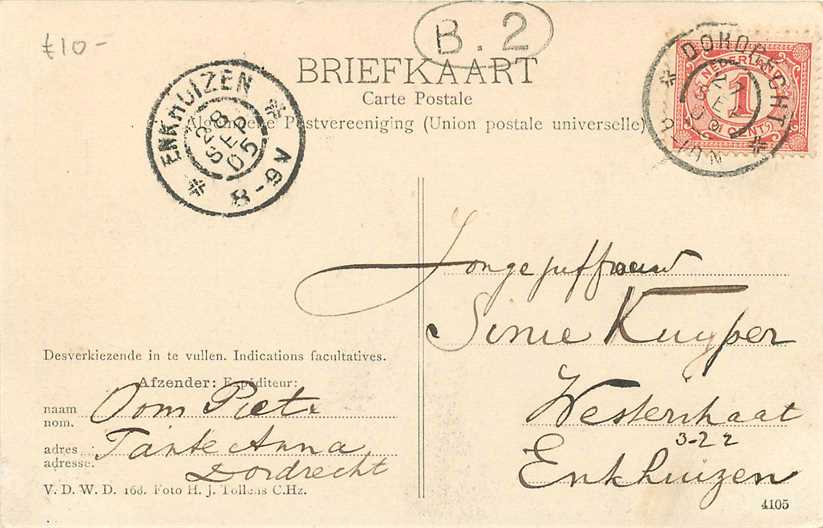 £10-
B.2
BRIEFKAART
Carte Postale
Algemeene Postvereeniging (Union postale universelle)
ENKHUIZEN
28
SEP
05
8-9V
DORDRECHT
NEDERLAND
1
CENT
Jongejuffrouw
Sinie Kuyper
Westerstraat
3-22
Enkhuizen
Desverkiezende in te vullen. Indications facultatives.
Afzender: Expéditeur:
naam Oom Piet
nom.
adres Tante Anna
adresse. Dordrecht
V. D. W. D. 168. Foto H. J. Tollens C.Hz.
4105